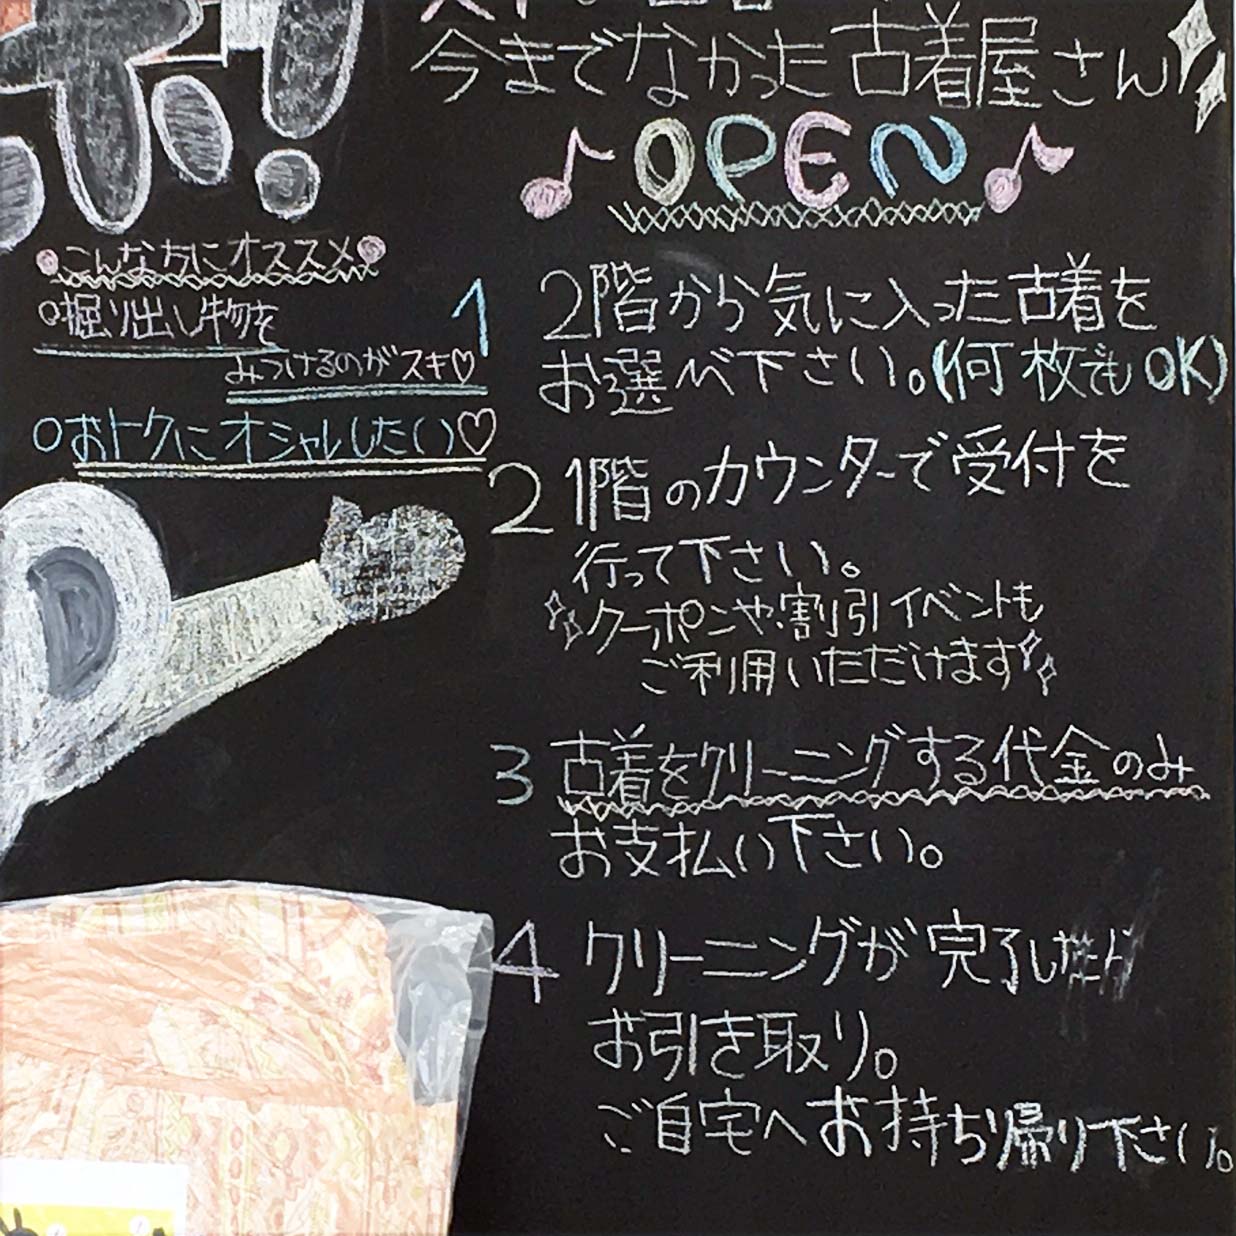 今までなかった古着屋さん
OPEN
こんな方にオススメ
○掘り出し物を
みつけるのがスキ♡
○おトクにオシャレしたい♡
1 2階から気に入った古着を
お選べ下さい。(何枚でもOK)
2 1階のカウンターで受付を
行って下さい。
クーポンや割引イベントも
ご利用いただけます
3 古着をクリーニングする代金のみ
お支払い下さい。
4 クリーニングが完了したら
お引き取り。
ご自宅へお持ち帰り下さい。